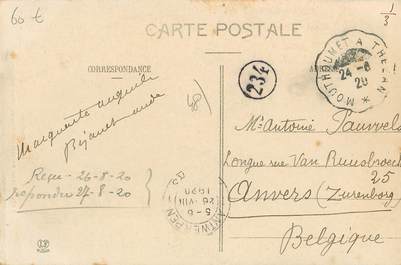 60 €
1/3
CARTE POSTALE
CORRESPONDANCE
234
MOUTHOUMET A
24-8
20
48)
Marguerite
Bizanet aude
Reçu - 26-8-20
répondu 27-8-20
ANTWERPEN
5-6
26 VIII
1920
Mr Antoine Pauwels
Longue rue Van Ruusbroeck
25
Anvers (Zurenborg)
Belgique